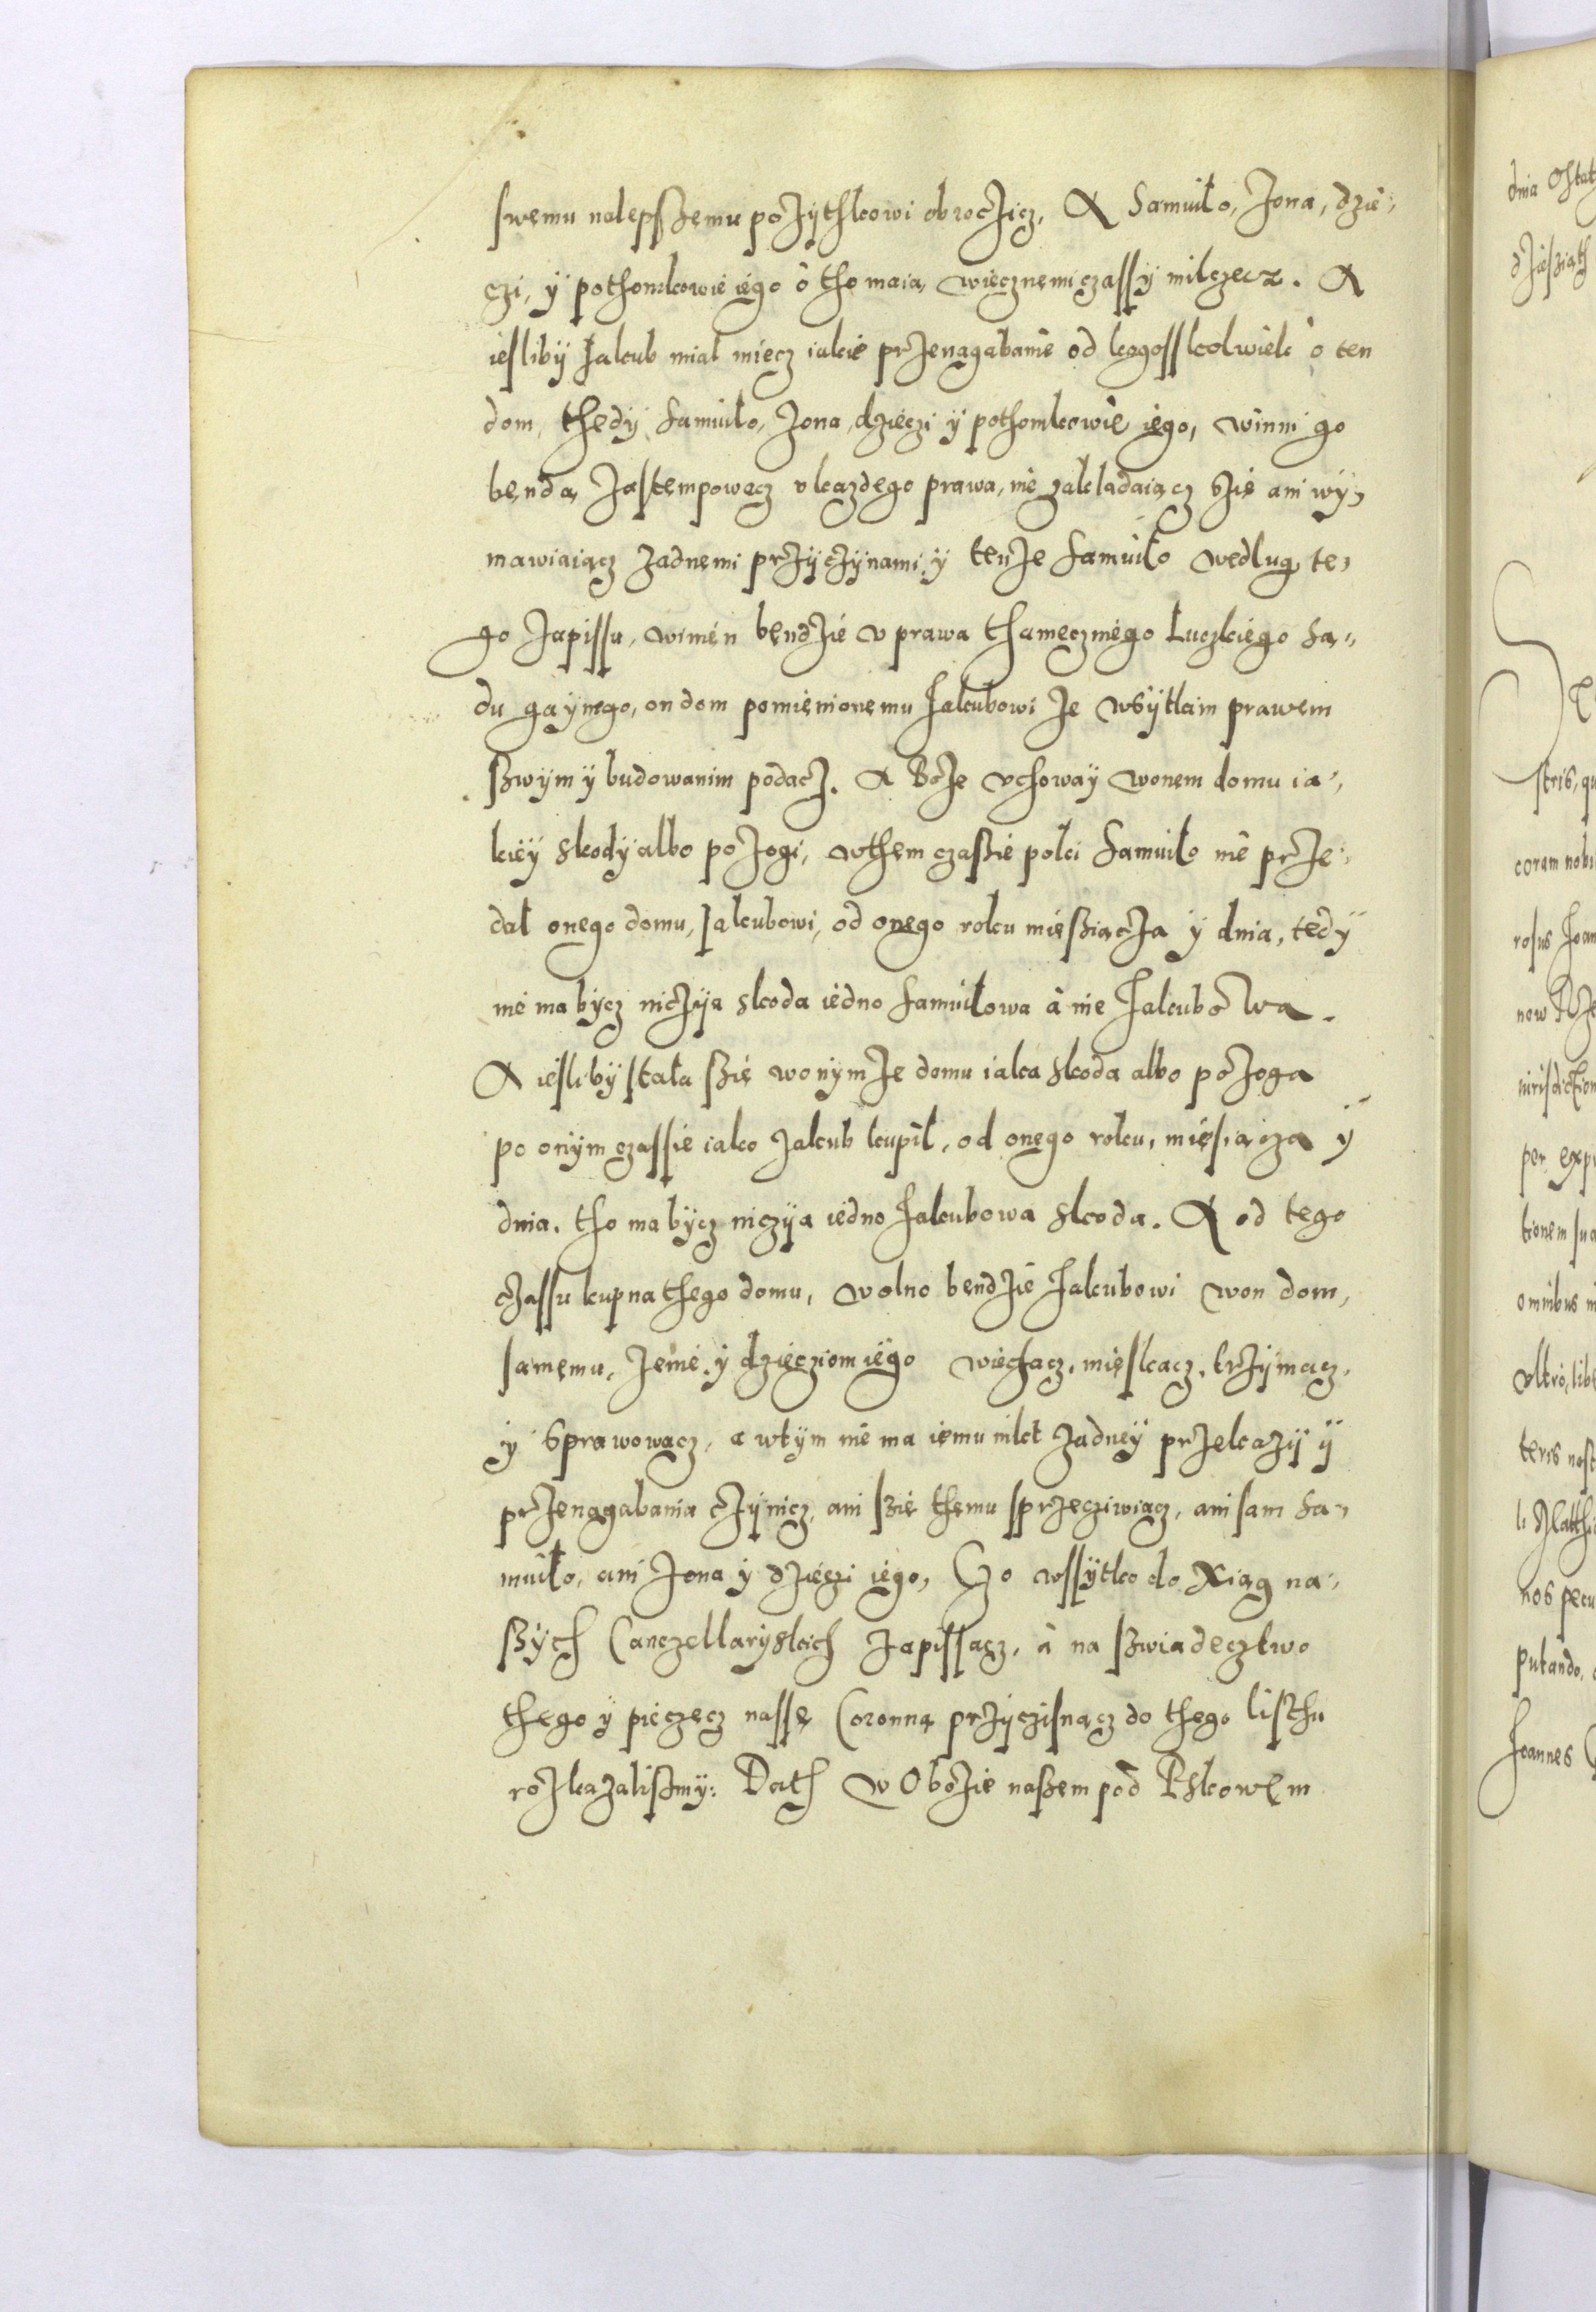 swemu nalepszemu pożythkowi obroczicz. A Samuiło, żona, dzie-
czi, ÿ pothomkowie iego o tho maią wiecznemi czassÿ milczecz. A
iesliby Jakub miał miecz iakie przenagabanie od kogosskolwiek o ten
dom, thedÿ Samuiło, żona, dzieczi ÿ pothomkowie iego, winni go
bendą zastempowacz v kazdego prawa, nie zakladaiącz szie ani wÿ-
mawiaiącz zadnemi przÿczÿnami, ÿ tenże Samuiło według te-
go zapissu, winien bendzie v prawa thamecznego Luczkiego Są-
du gaÿnego, on dom pomienionemu Jakubowi ze wsÿtkim prawem
szwÿm ÿ budowanim podacz. A Boże vchowaÿ wonem domu ia-
kieÿ skodÿ albo pożogi, wthem czaszie poki Samuiło nie prze-
dał onego domu, Jakubowi, od onego roku miesziącza ÿ dnia, tedÿ
nie ma bÿcz niczÿia skoda iedno Samuiłowa a nie Jakubowa.
A iesliby stała szie wonÿmże domu iaka skoda albo pożoga
po onÿm czassie iako Jakub kupił, od onego roku, miesiącza ÿ
dnia, tho ma bÿcz niczÿia iedno Jakubowa skoda. A od tego
czassu kupna thego domu, wolno bendzie Jakubowi won dom,
samemu, żenie ÿ dziecziom iego wiechacz, mieskacz, trzÿmacz,
ÿ sprawowacz, a wtÿm nie ma iemu nikt zadneÿ przekazÿ ÿ
przenagabania czÿnicz, ani szie themu sprzecziwiacz, ani sam Sa-
muiło, ani żona ÿ dzieczi iego, Czo wssÿtko do Xiąg na-
szÿch Canczellarÿskich zapissacz, a na szwiadecztwo
thego ÿ pieczecz nassę Coronną przÿczisnącz do thego listhu
rozkazalismÿ: Dath w Obozie naszem pod Pskowem